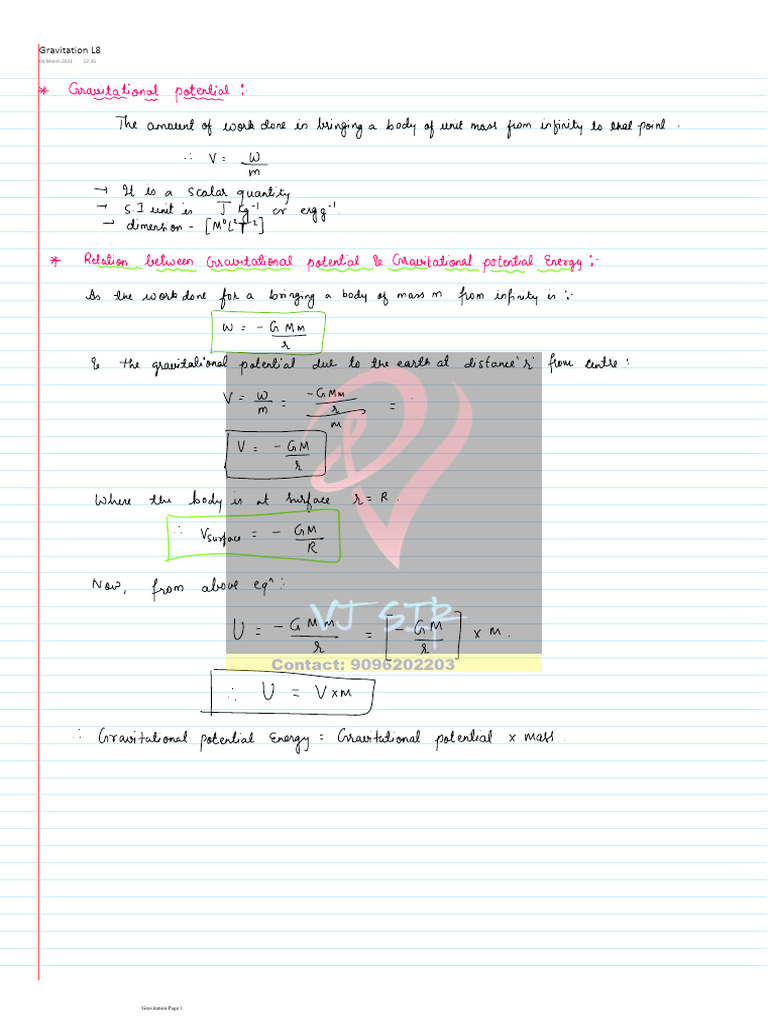 Gravitation L8
04 March 2021 12:35
* Gravitational potential :
The amount of work done in bringing a body of unit mass from infinity to that point .
∴ V = W/m
→ It is a scalar quantity
→ S.I unit is J kg⁻¹ or erg g⁻¹.
→ dimension - [M⁰L²T⁻²]
* Relation between Gravitational potential & Gravitational potential Energy :-
As the work done for a bringing a body of mass m from infinity is :-
W = - GMm/r
& the gravitational potential due to the earth at distance 'r' from centre :
V = W/m = (-GMm/r)/m =
V = - GM/r
Where the body is at surface r = R .
∴ Vsurface = - GM/R
Now, from above eqⁿ :-
U = - GMm/r = [- GM/r] × m .
VJ SIR
Contact: 9096202203
∴ U = V×m
∴ Gravitational potential Energy = Gravitational potential × mass .
Gravitation Page 1